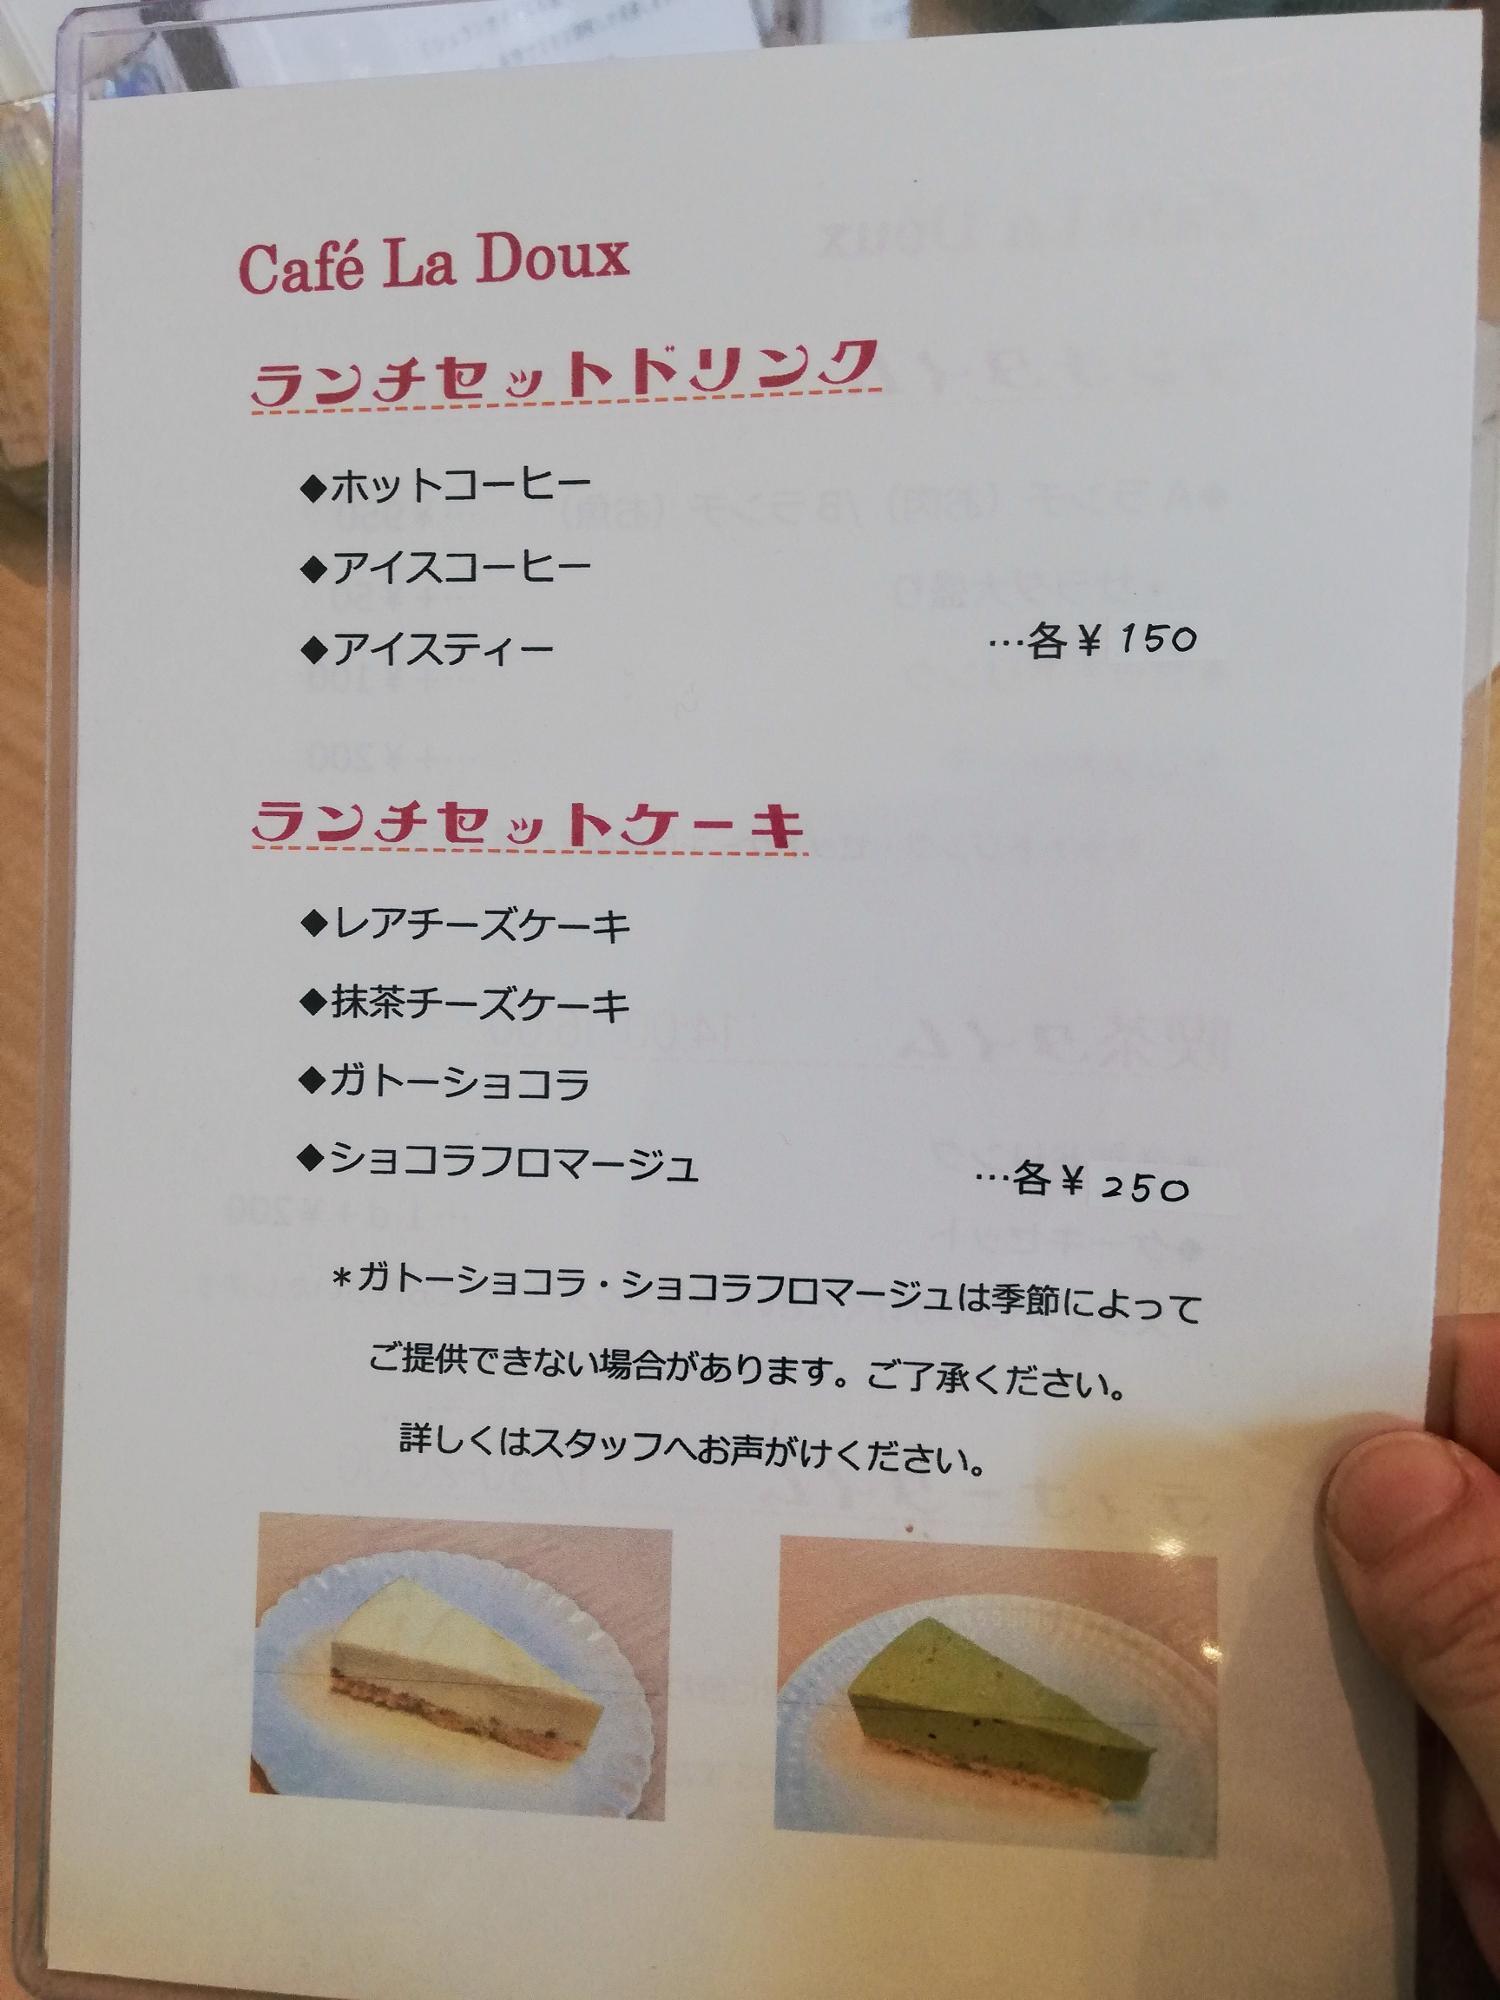 Café La Doux
ランチセットドリンク
◆ホットコーヒー
◆アイスコーヒー
◆アイスティー …各¥150
ランチセットケーキ
◆レアチーズケーキ
◆抹茶チーズケーキ
◆ガトーショコラ
◆ショコラフロマージュ …各¥250
＊ガトーショコラ・ショコラフロマージュは季節によって
ご提供できない場合があります。ご了承ください。
詳しくはスタッフへお声がけください。